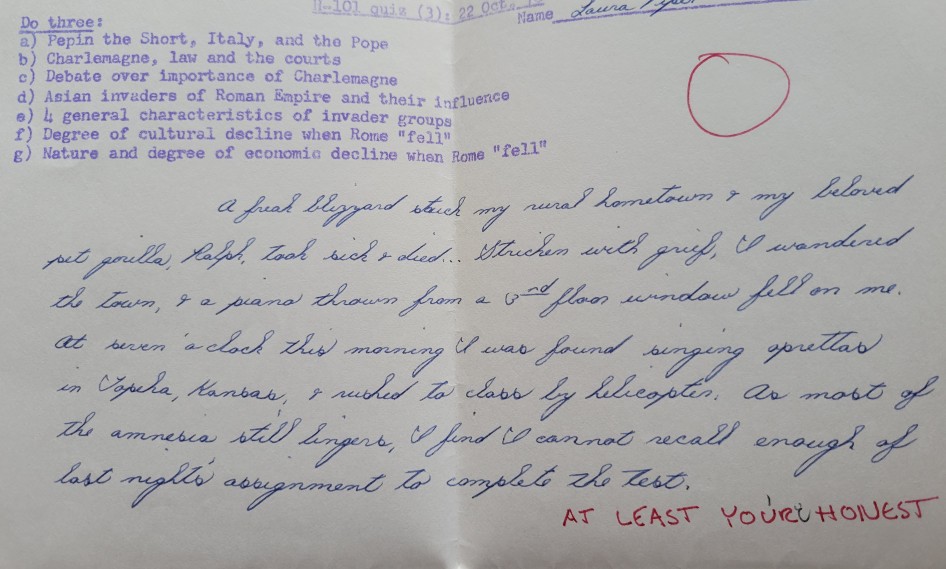 H-101 quiz (3): 22 Oct.
Name Laura
Do three:
a) Pepin the Short, Italy, and the Pope
b) Charlemagne, law and the courts
c) Debate over importance of Charlemagne
d) Asian invaders of Roman Empire and their influence
e) 4 general characteristics of invader groups
f) Degree of cultural decline when Rome "fell"
g) Nature and degree of economic decline when Rome "fell"
A freak blizzard stuck my rural hometown & my beloved
pet gorilla, Ralph, took sick & died... Stricken with grief, I wandered
the town, & a piano thrown from a 3nd floor window fell on me.
At seven o'clock this morning I was found singing oprettas
in Topeka, Kansas, & rushed to class by helicopter. As most of
the amnesia still lingers, I find I cannot recall enough of
last night's assignment to complete the test.
AT LEAST YOU'RE HONEST